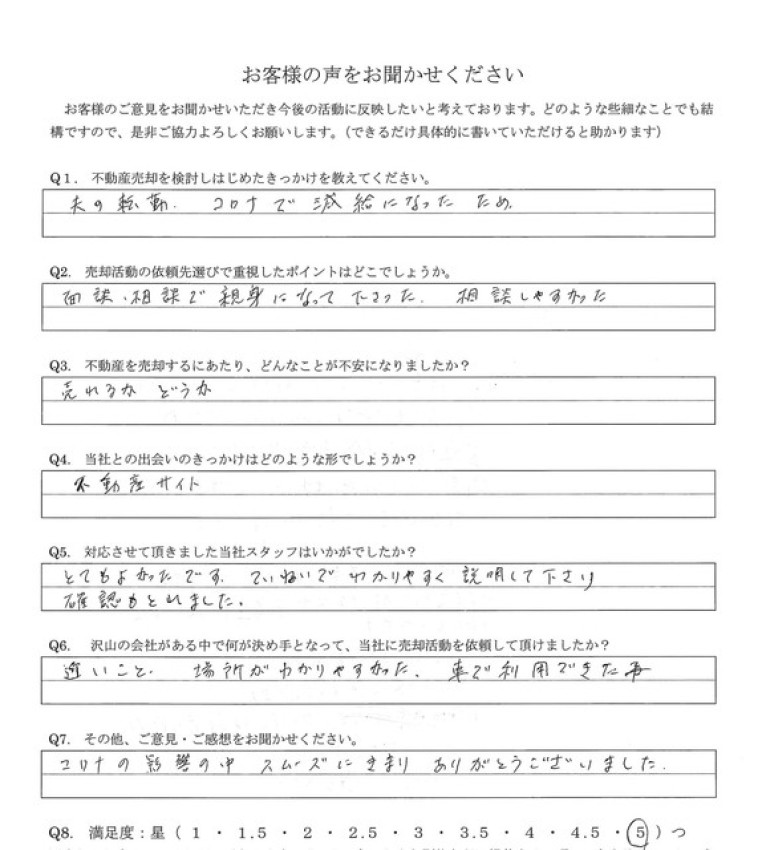 お客様の声をお聞かせください
お客様のご意見をお聞かせいただき今後の活動に反映したいと考えております。どのような些細なことでも結
構ですので、是非ご協力よろしくお願いします。(できるだけ具体的に書いていただけると助かります)
Q1. 不動産売却を検討しはじめたきっかけを教えてください。
夫の転勤. コロナで減給になった ため.
Q2. 売却活動の依頼先選びで重視したポイントはどこでしょうか。
面談・相談で親身になって下さった. 相談しやすかった
Q3. 不動産を売却するにあたり、どんなことが不安になりましたか?
売れるか どうか
Q4. 当社との出会いのきっかけはどのような形でしょうか?
不動産サイト
Q5. 対応させて頂きました当社スタッフはいかがでしたか?
とてもよかったです. ていねいで わかりやすく 説明して下さり
確認もとれました.
Q6. 沢山の会社がある中で何が決め手となって、当社に売却活動を依頼して頂けましたか?
近いこと. 場所がわかりやすかった. 車で利用できた事
Q7. その他、ご意見・ご感想をお聞かせください。
コロナの影響の中 スムーズにきまり ありがとうございました.
Q8. 満足度:星 ( 1 ・ 1.5 ・ 2 ・ 2.5 ・ 3 ・ 3.5 ・ 4 ・ 4.5 ・ 5 ) つ